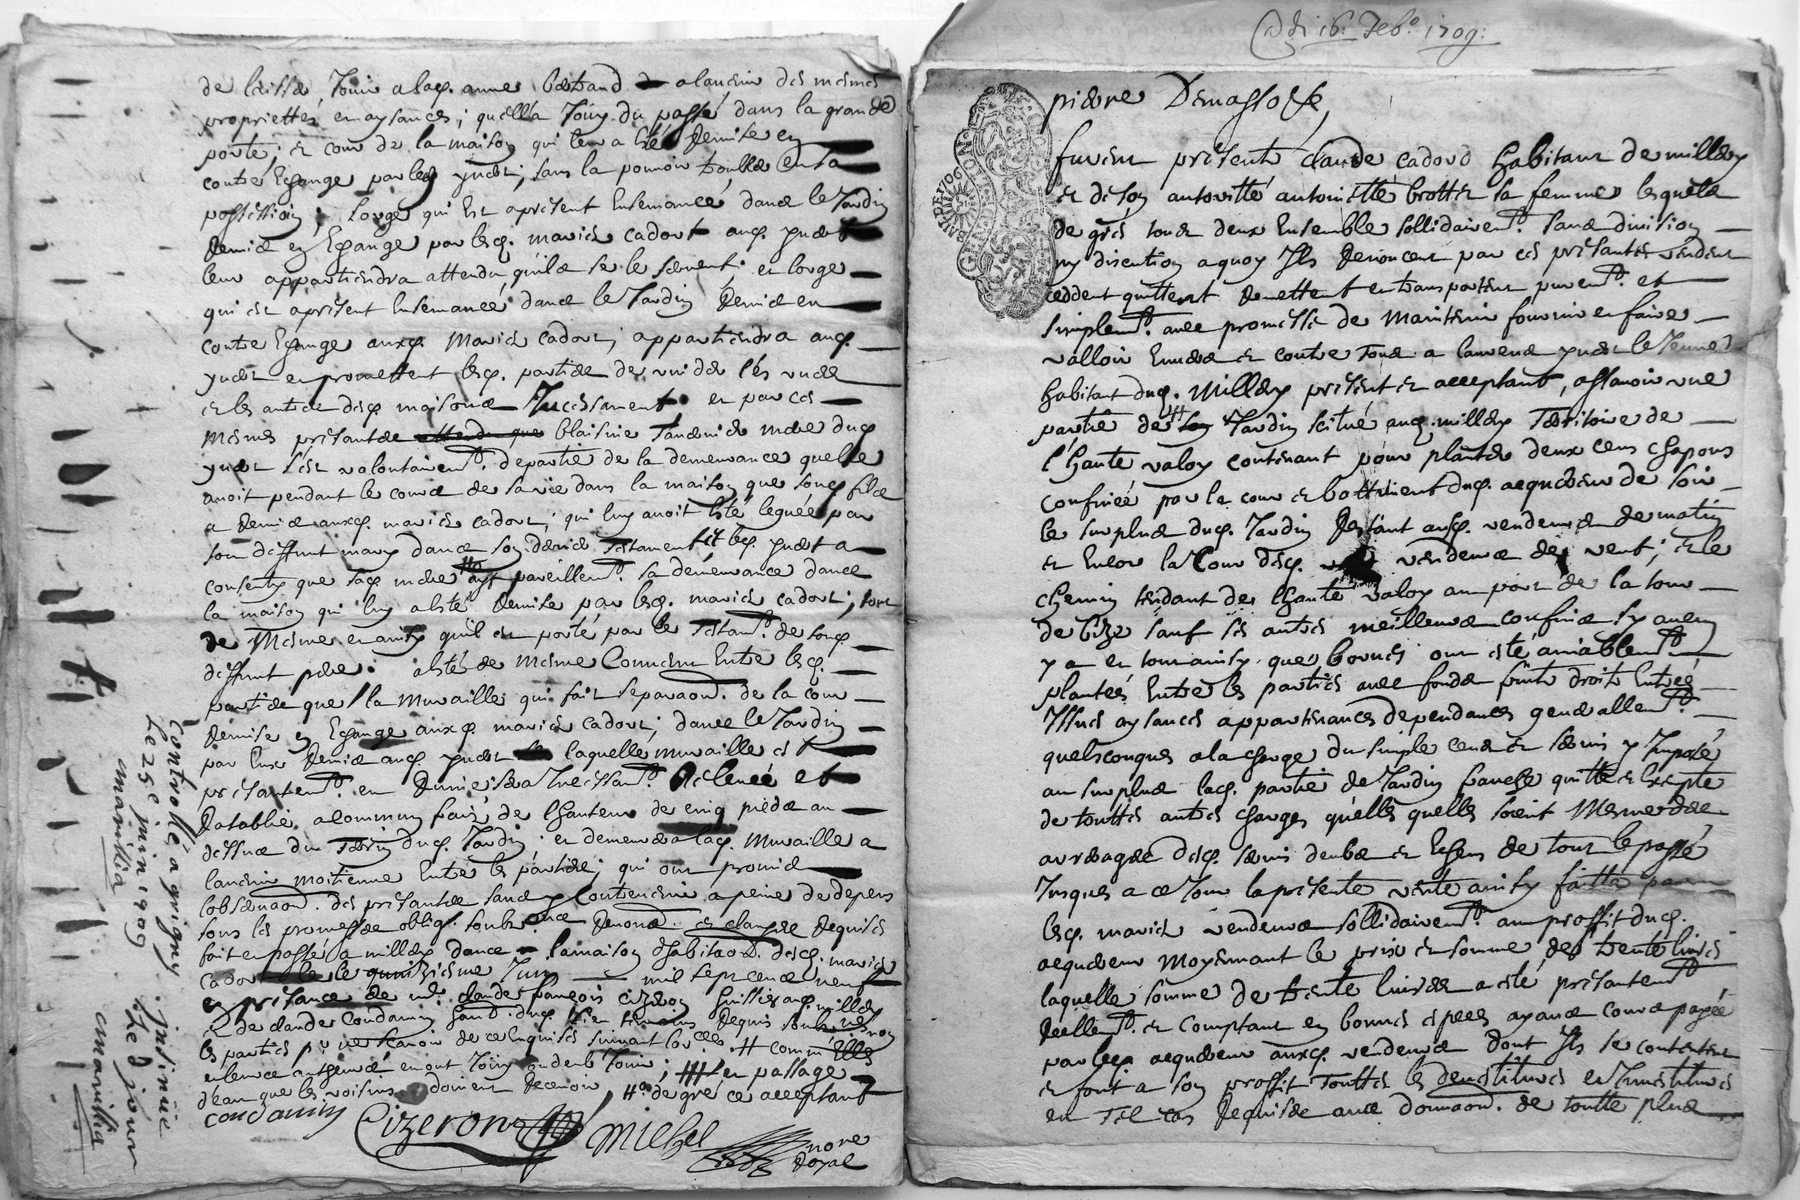 de laisser Jouir alad. anne bertrand a lavenir des mesmes
proprietté en aysances; quella Jouy du passé dans la grande
porte; et cour de la maison qui leur a esté Remise en
contre Eschange par led yndet; sans la pouvoir troubler en sa
possession; lorge qui est apresent Ensemancé dans le Jardin
Remis en Eschange par lesd. mariés cadort aud. yndet
leur appartiendra attendu quils se le servent et lorge
qui est apresent Ensemancé dans le Jardin Remis en
contre Eschange auxd. mariés cadort; appartiendra aud.
yndet et promettent lesd. parties de vuider les uns
et les autres desd maisons Incessament et par ces
mesmes presantes attendu que blaisine mere dud
yndet sest volontairemt. departie de la demeurance quelle
avoit pendant le cours de sa vie dans la maison que sond filz
a Remis auxd. mariés cadort; qui luy avoit esté leguée par
son deffunt mary dans son dernier Testament et led. yndet a
consenty que sad mere ayt pareillemt. sa demeurance dans
la maison qui luy a esté Remise par lesd. mariés cadort; tout
de Mesme et ainsy quil est porté par le Testamt. de sond.
deffunt pere. a esté de mesme Convenu Entre lesd.
parties que la muraille qui fait separaon. de la cour
Remise en Eschange auxd. mariés cadort; dans le Jardin
par Eux Remis aud yndet laquelle muraille est
presantemt. en Ruine sera Incessamt. Relevée et
Retablie a commun frais de lhauteur de cinq pieds au
dessus du Terrin dud. Jardin; et demeurera lad. muraille a
lavenir moitienne Entre les parties; qui ont promis
lobservaon. des presantes sans y Contrevenir a peine de depens
sous les promesses oblig. soubz. ons Renons. et clauses Requises
fait et passé a millery dans la maison dhabitaon. desd. mariés
cadort le quinziesme Juin mil sept cens neuf
en presance de mr. claude françois cizeron huissier aud. millery
et de claude Condamin dud. lieu temoins Requis soubz.nés non
les parties pour ne scavoir de ce Enquises suivant lor.ce
Jouir; et passage
deau que les voisins doivent Recevoir de gré ce acceptant
condamin
Cizeron Michel
nore
Royal
Controllé a grigny
Le 25e juin 1709
Amarillia
insinué
Le d jour
Amarillia
Du 16 Feb.o 1709:
GENERALITE DE LYON
pierre Demassosse,
furent presents claude cadord habitant de millery
et de son autorité antoinette brottet sa femme lesquels
de grés tous deux Ensemble sollidairemt. sans division
ny discution aquoy Ils Renoncent par ces presantes vendent
ceddent quittent Remettent et transportent puremt. et
simplemt. avec promesse de Maintenir fournir et faire
valloir Envers et contre tous a laurens yndet le Jeune
habitant dud. Millery present et acceptant, assavoir une
partie de son Jardin scitué aud. millery Territoire de
l'haute valoy contenant pour planter deux cens chapons
confinée par la cour et battiment dud. acquereur de soir
le surplus dud. Jardin Restant ausd. vendeurs de matin
et Encor la Cour desd. vendeurs de vent; et le
chemin tendant de lhaute valoy au port de la tour
de bize sauf ses autres meilleurs confins sy aucun
y a et tout ainsy que bornes ont esté amiablemt.
plantées Entre les parties avec fonds fruits droits Entrée
Issues aysances appartenances dependances generallemt.
quelsconques a la charge du simple cens et servis y Imposé
au surplus lad. partie de Jardin franche quitte et Exempte
de touttes autres charges quelles quelles soient Mesme des
arrerages desd. servis deubs et Escheus de tout le passé
Jusques a ce Jour la presente vente ainsy faitte par
lesd. mariés vendeurs sollidairemt. au proffit dud.
acquereur Moyennant le prix et somme de trente livres
laquelle somme de trente livres a esté presantemt.
Reellemt. et comptant en bonnes especes ayans cours payée
par led acquereur auxd. vendeurs dont Ils se contentent
et font a son proffit touttes les devestitures et Investitures
en tel cas Requises avec donnaon. de toutte plus